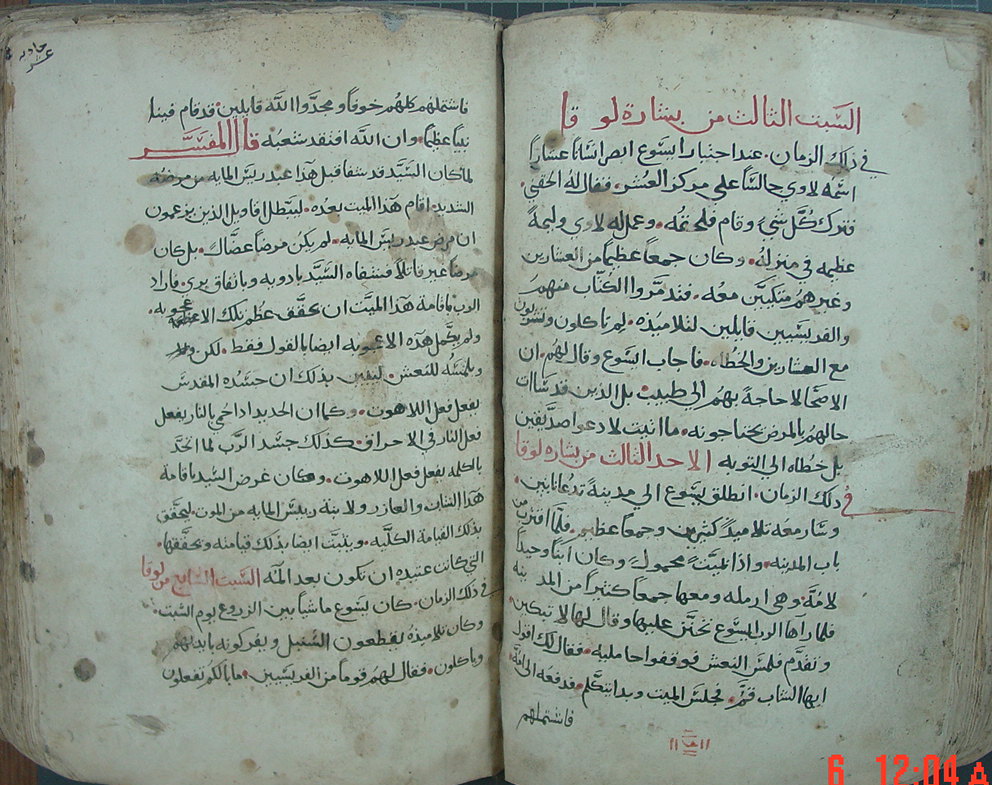 السبت الثالث من بشارة لوقا
في ذلك الزمان. عند اجتيار ايسوع ابصر انسانا عشارا
اسمه لاوي جالسا على مركز العشر. فقال له الحقني.
فترك كل شي وقام فلحقه. وعمل له لاوي وليمة
عظيمه في منزله. وكان جمعا عظيما من العشارين
وغيرهم متكيين معه. فتدمروا الكتاب منهم
والفريسيين قايلين لتلاميذه. لم تاكلون وتشربون
مع العشارين والخطاه. فاجاب ايسوع وقال لهم. ان
الاصحا لا حاجة بهم الى طبيب. بل الذين قد سات
حالهم بالمرض يحتاجونه. ما اتيت لادعوا صديقين
بل خطاه الى التوبه الاحد الثالث من بشاره لوقا
في ذلك الزمان. انطلق يسوع الى مدينة تدعا نايين.
وسار معه تلاميذ كثيرين وجمعا عظيم. فلما اقترب من
باب المدينه. واذا بميت محمول. وكان ابنا وحيدا
لامه. وهي ارمله ومعها جمعا كثيرا من المدينه
فلما راها الرب ايسوع تحنن عليها وقال لها لا تبكين.
وتقدم فلمس النعش فوقفوا حامليه. فقال لك اقول
ايها الشاب قم. فجلس الميت وبدا يتكلم. فدفعه الى امه.
فاشتملهم
حاديه عشر
فاشتملهم كلهم خوفا ومجدوا الله قايلين. قد قام فينا
نبيا عظيما. وان الله افتقد شعبه قال المفسر
لما كان السيد قد شفا قبل هذا عبد ريس المايه من مرضه
الشديد. اقام هذا الميت بعده. ليبطل اقاويل الذين يزعمون
ان مرض عبد ريس المايه. لم يكن مرضا عضال. بل كان
مرضا غير قاتلا فشفاه السيد بادويه وباتفاق بري. فاراد
الرب باقامة هذا الميت ان يحقق عظم تلك الاعجوبه.
ولم يكمل هذه الاعجوبه ايضا بالقول فقط. لكن
وبلمسه للنعش. ليتقين بذلك ان جسده المقدس
يفعل فعل اللاهوت. وكما ان الحديد اذا حمي بالنار يفعل
فعل النار في الاحراق. كذلك جسد الرب لما اتحد
بالكلمه يفعل فعل اللاهوت. وكان غرض السيد باقامة
هذا الشاب والعازر ولابنة ريس المايه من الموت. ليحقق
بذلك القيامة الكليه. ويثبت ايضا بذلك قيامته ويحققها.
التي كانت عتيده ان تكون بعد المه السبت السابع من لوقا
في ذلك الزمان. كان يسوع ماشيا بين الزروع يوم السبت.
وكان تلاميذه يقطعون السنبل ويفركونه بايديهم
وياكلون. فقال لهم قوما من الفريسيين. ما بالكم تفعلون
6 12:04